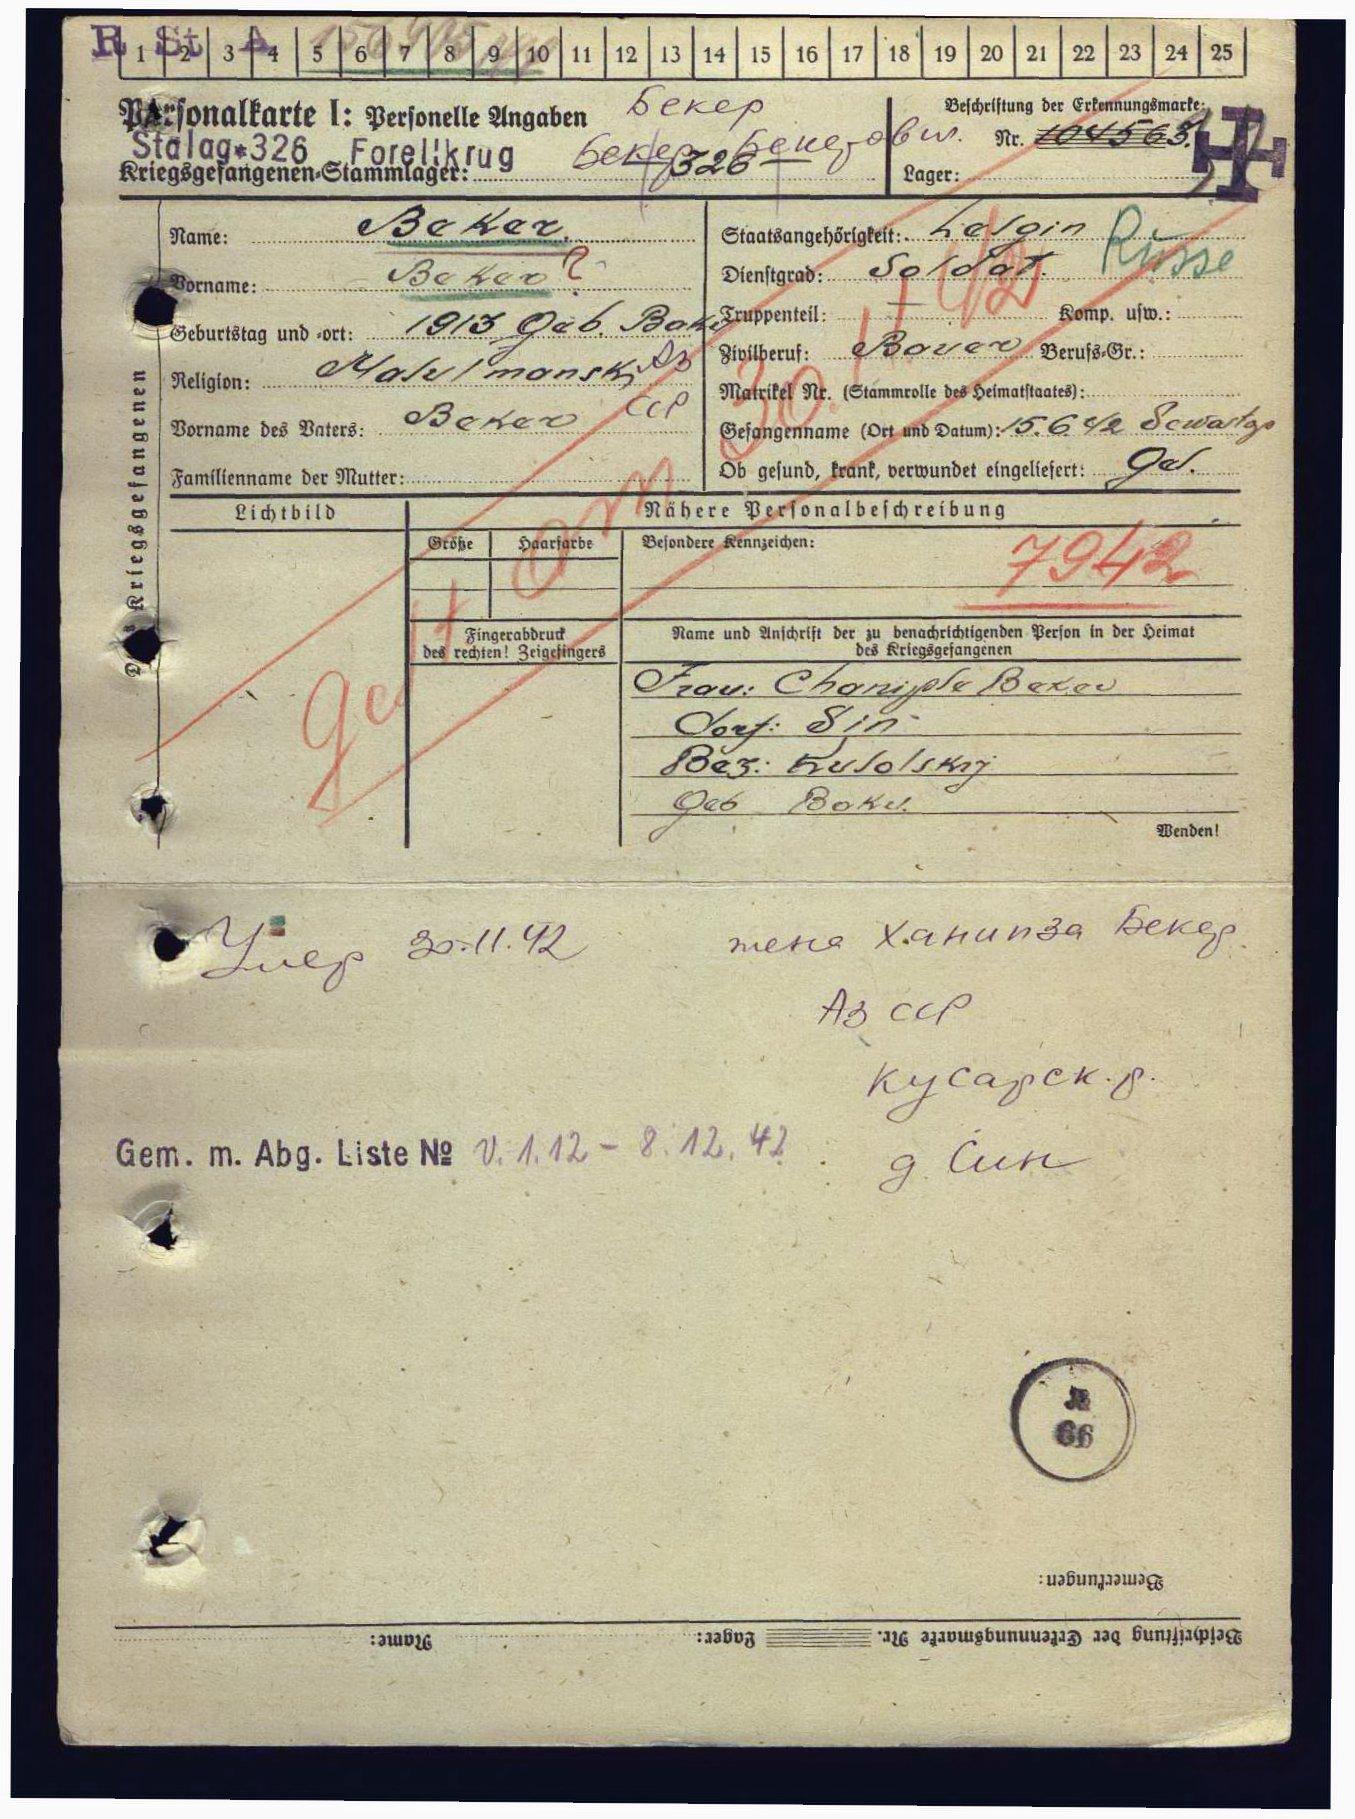 R St A
1 2 3 4 5 6 7 8 9 10 11 12 13 14 15 16 17 18 19 20 21 22 23 24 25
Personalkarte I: Personelle Angaben
Бекер
Beschriftung der Erkennungsmarke:
Stalag 326 Forellkrug
Бекер Бекерович
Nr. 104563
Kriegsgefangenen-Stammlager: 326
Lager:
Des Kriegsgefangenen
Name: Beker
Staatsangehörigkeit: Lesgin Russe
Vorname: Beker ?
Dienstgrad: Soldat.
Geburtstag und -ort: 1913 Geb. Baku
Truppenteil: — Komp. usw.:
Аз ССР
Zivilberuf: Bauer Berufs-Gr.:
Religion: Muselmansk
Matrikel Nr. (Stammrolle des Heimatstaates):
Vorname des Vaters: Beker
Gefangennahme (Ort und Datum): 15.6.42 Sewastop
Familienname der Mutter:
Ob gesund, krank, verwundet eingeliefert: Ges.
gest. am 30.11.42
Lichtbild
Nähere Personalbeschreibung
Größe
Haarfarbe
Besondere Kennzeichen:
7942
Fingerabdruck
des rechten! Zeigefingers
Name und Anschrift der zu benachrichtigenden Person in der Heimat
des Kriegsgefangenen
Frau: Beker
Dorf: Sin
Bez: Kusolskij
Geb Baku.
Wenden!
Умер 30.11.42
жена Ханипза Бекер.
Аз ССР
Кусарск. р.
д. Син
Gem. m. Abg. Liste № V. 1.12 - 8.12.42
66
Bemerkungen:
Beschriftung der Erkennungsmarke Nr. Lager: Name: